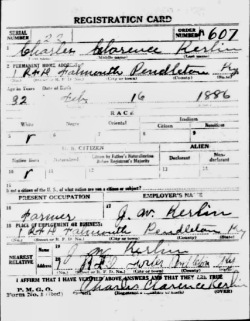 REGISTRATION CARD
SERIAL NUMBER
ORDER NUMBER 607
1 Charles Clarence Kerlin
2 PERMANENT HOME ADDRESS:
1 R#4 Falmouth Pendleton Ky
Age in Years Date of Birth
32 Feb 16 1886
RACE
White Negro Oriental Indian
Citizen Noncitizen
U. S. CITIZEN ALIEN
Native Born Naturalized Citizen by Father's Naturalization Before Registrant's Majority Declarant Non-declarant
If not a citizen of the U. S., of what nation are you a citizen or subject?
PRESENT OCCUPATION EMPLOYER'S NAME
Farmer J. W. Kerlin
18 PLACE OF EMPLOYMENT OR BUSINESS:
1 R#4 Falmouth Pendleton Ky
NEAREST RELATIVE
Kerlin
I AFFIRM THAT I HAVE VERIFIED ABOVE ANSWERS AND THAT THEY ARE TRUE
P. M. G. O.
Form No. 1 (Red)
Charles Clarence Kerlin
(OVER)